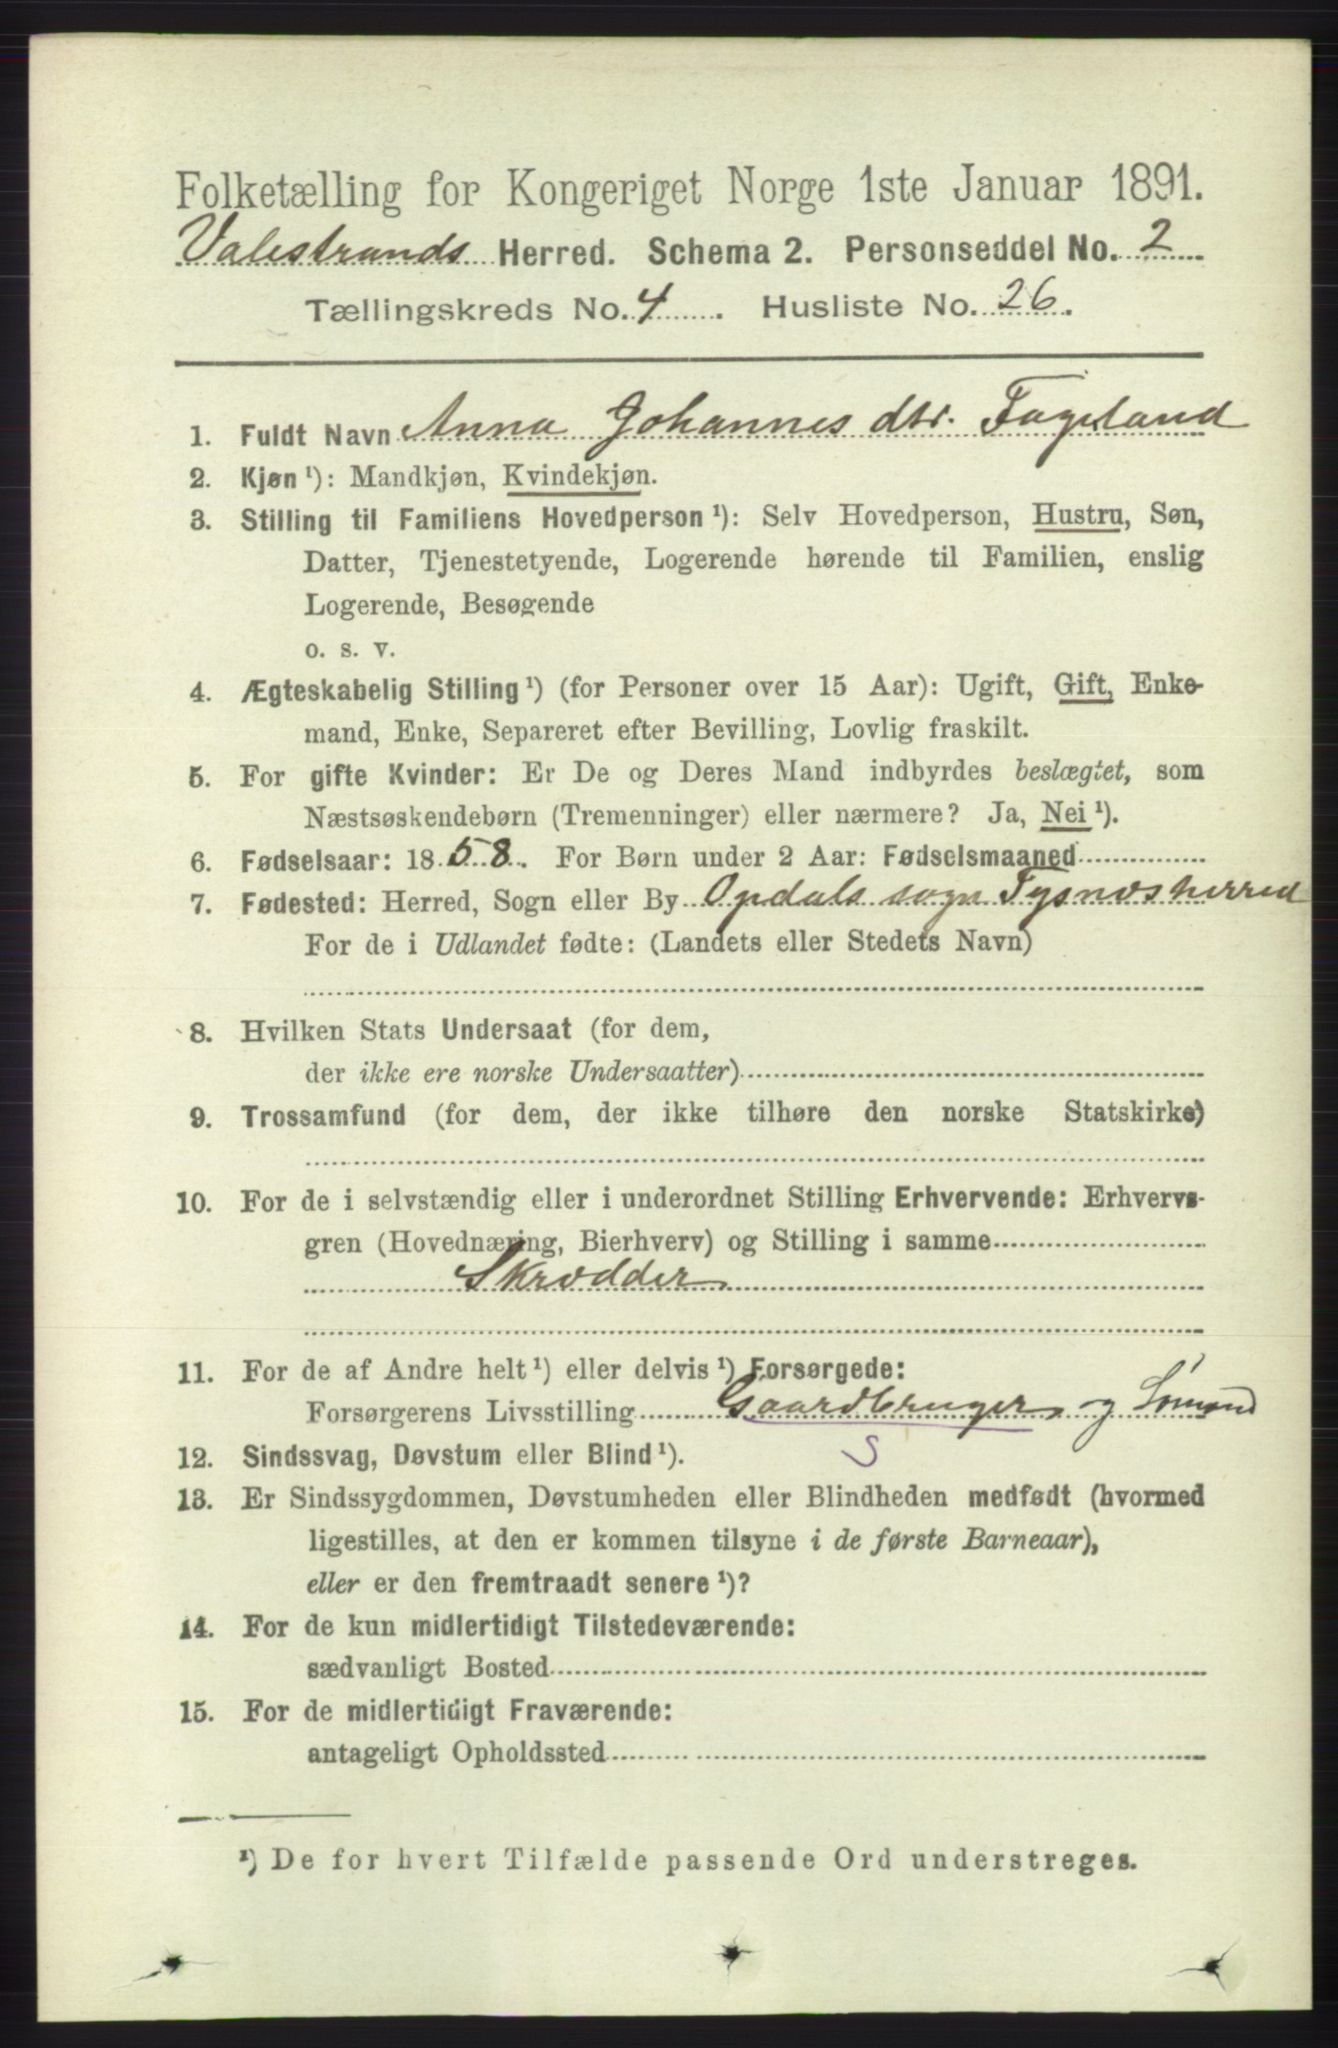 Folketælling for Kongeriget Norge 1ste Januar 1891.
Valestrands Herred. Schema 2. Personseddel No. 2
Tællingskreds No. 4. Husliste No. 26.
1. Fuldt Navn Anna Johannes dtr. Fageland
2. Kjøn ¹): Mandkjøn, Kvindekjøn.
3. Stilling til Familiens Hovedperson ¹): Selv Hovedperson, Hustru, Søn,
Datter, Tjenestetyende, Logerende hørende til Familien, enslig
Logerende, Besøgende
o. s. v.
4. Ægteskabelig Stilling ¹) (for Personer over 15 Aar): Ugift, Gift, Enke-
mand, Enke, Separeret efter Bevilling, Lovlig fraskilt.
5. For gifte Kvinder: Er De og Deres Mand indbyrdes beslægtet, som
Næstsøskendebørn (Tremenninger) eller nærmere? Ja, Nei ¹).
6. Fødselsaar: 1858. For Børn under 2 Aar: Fødselsmaaned
7. Fødested: Herred, Sogn eller By Opdals sogn Tysnæsherred
For de i Udlandet fødte: (Landets eller Stedets Navn)
8. Hvilken Stats Undersaat (for dem,
der ikke ere norske Undersaatter)
9. Trossamfund (for dem, der ikke tilhøre den norske Statskirke)
10. For de i selvstændig eller i underordnet Stilling Erhvervende: Erhvervs-
gren (Hovednæring, Bierhverv) og Stilling i samme
Skrædder
11. For de af Andre helt ¹) eller delvis ¹) Forsørgede:
Forsørgerens Livsstilling Gaardbruger og Sömand
S
12. Sindssvag, Døvstum eller Blind ¹).
13. Er Sindssygdommen, Døvstumheden eller Blindheden medfødt (hvormed
ligestilles, at den er kommen tilsyne i de første Barneaar),
eller er den fremtraadt senere ¹)?
14. For de kun midlertidigt Tilstedeværende:
sædvanligt Bosted
15. For de midlertidigt Fraværende:
antageligt Opholdssted
¹) De for hvert Tilfælde passende Ord understreges.